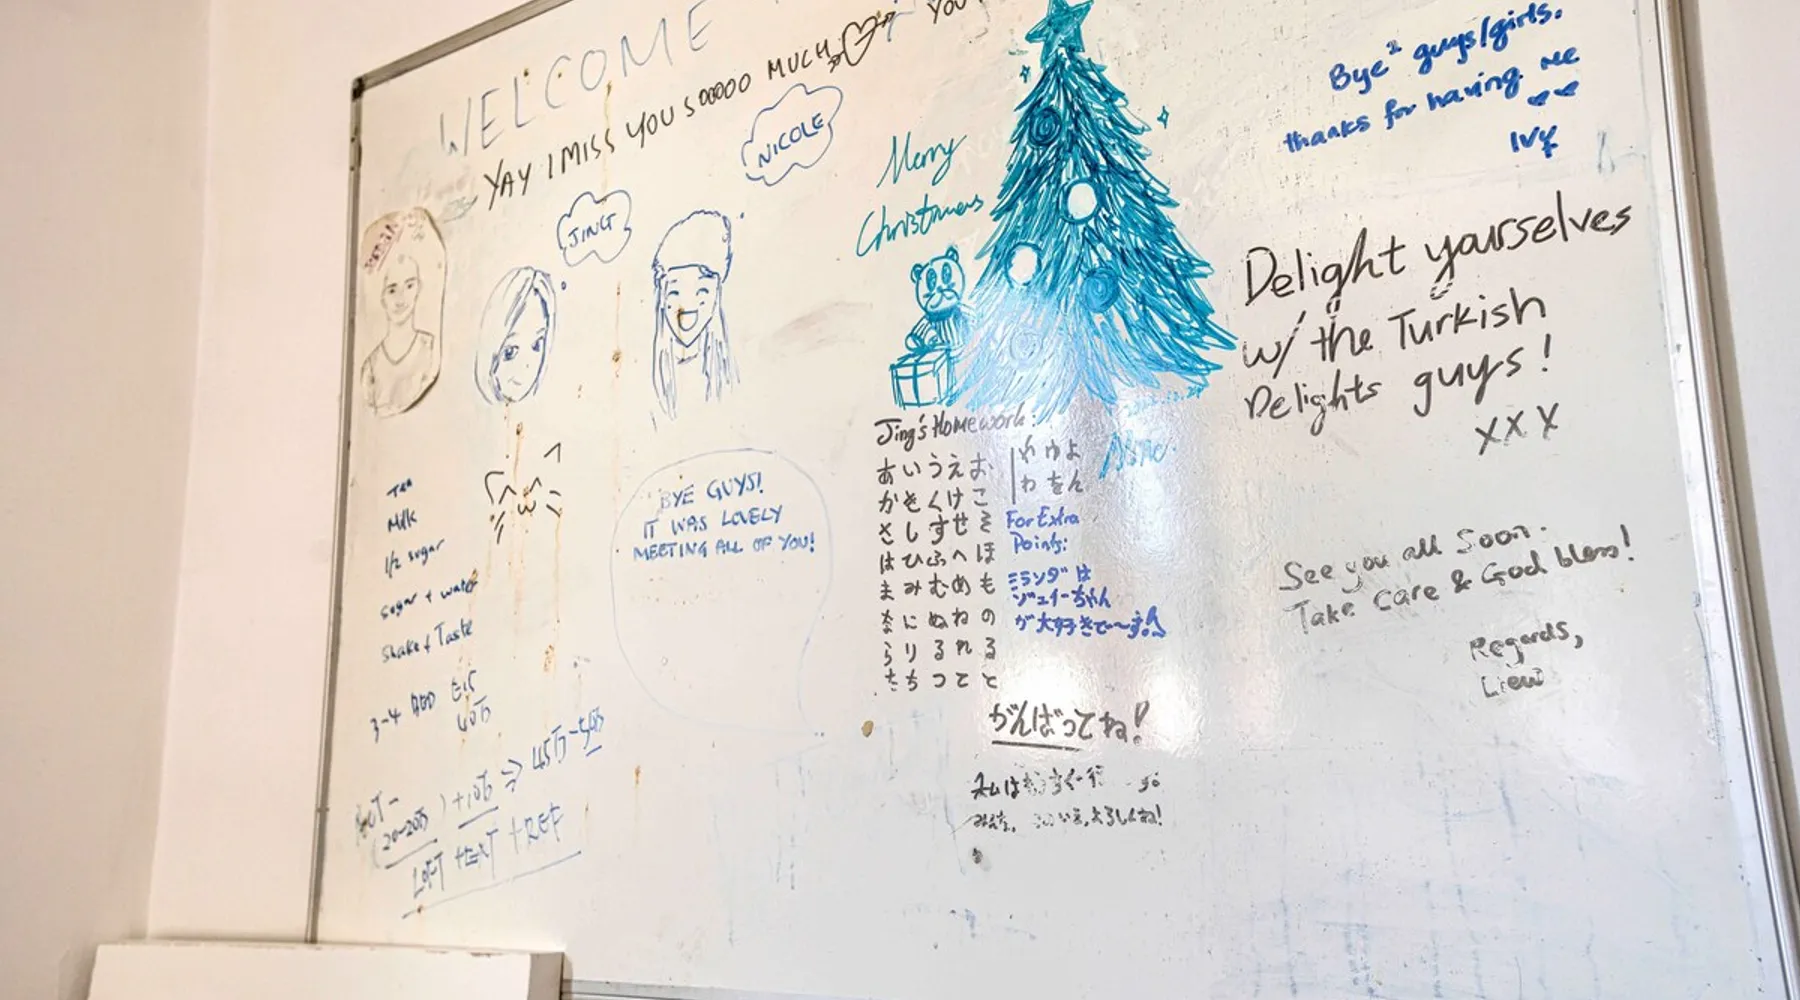 WELCOME
YAY I MISS YOU SOOOOO MUCH
YOU
JING
NICOLE
Merry
Christmas
Bye² guys/girls.
thanks for having me
Ivy
Delight yourselves
w/ the Turkish
Delights guys!
xxx
Tea
Milk
1/2 sugar
sugar + water
Shake & Taste
3-4
BYE GUYS!
IT WAS LOVELY
MEETING ALL OF YOU!
Jing's Homework:
あいうえお
かきくけこ
さしすせそ
はひふへほ
まみむめも
なにぬねの
らりるれる
たちつてと
やゆよ
わをん
For Extra
Points:
ミランダは
ジェイーちゃん
が大好きで〜す!
がんばってね!
See you all soon.
Take care & God bless!
Regards,
Liew
LOFT + EXT + REF